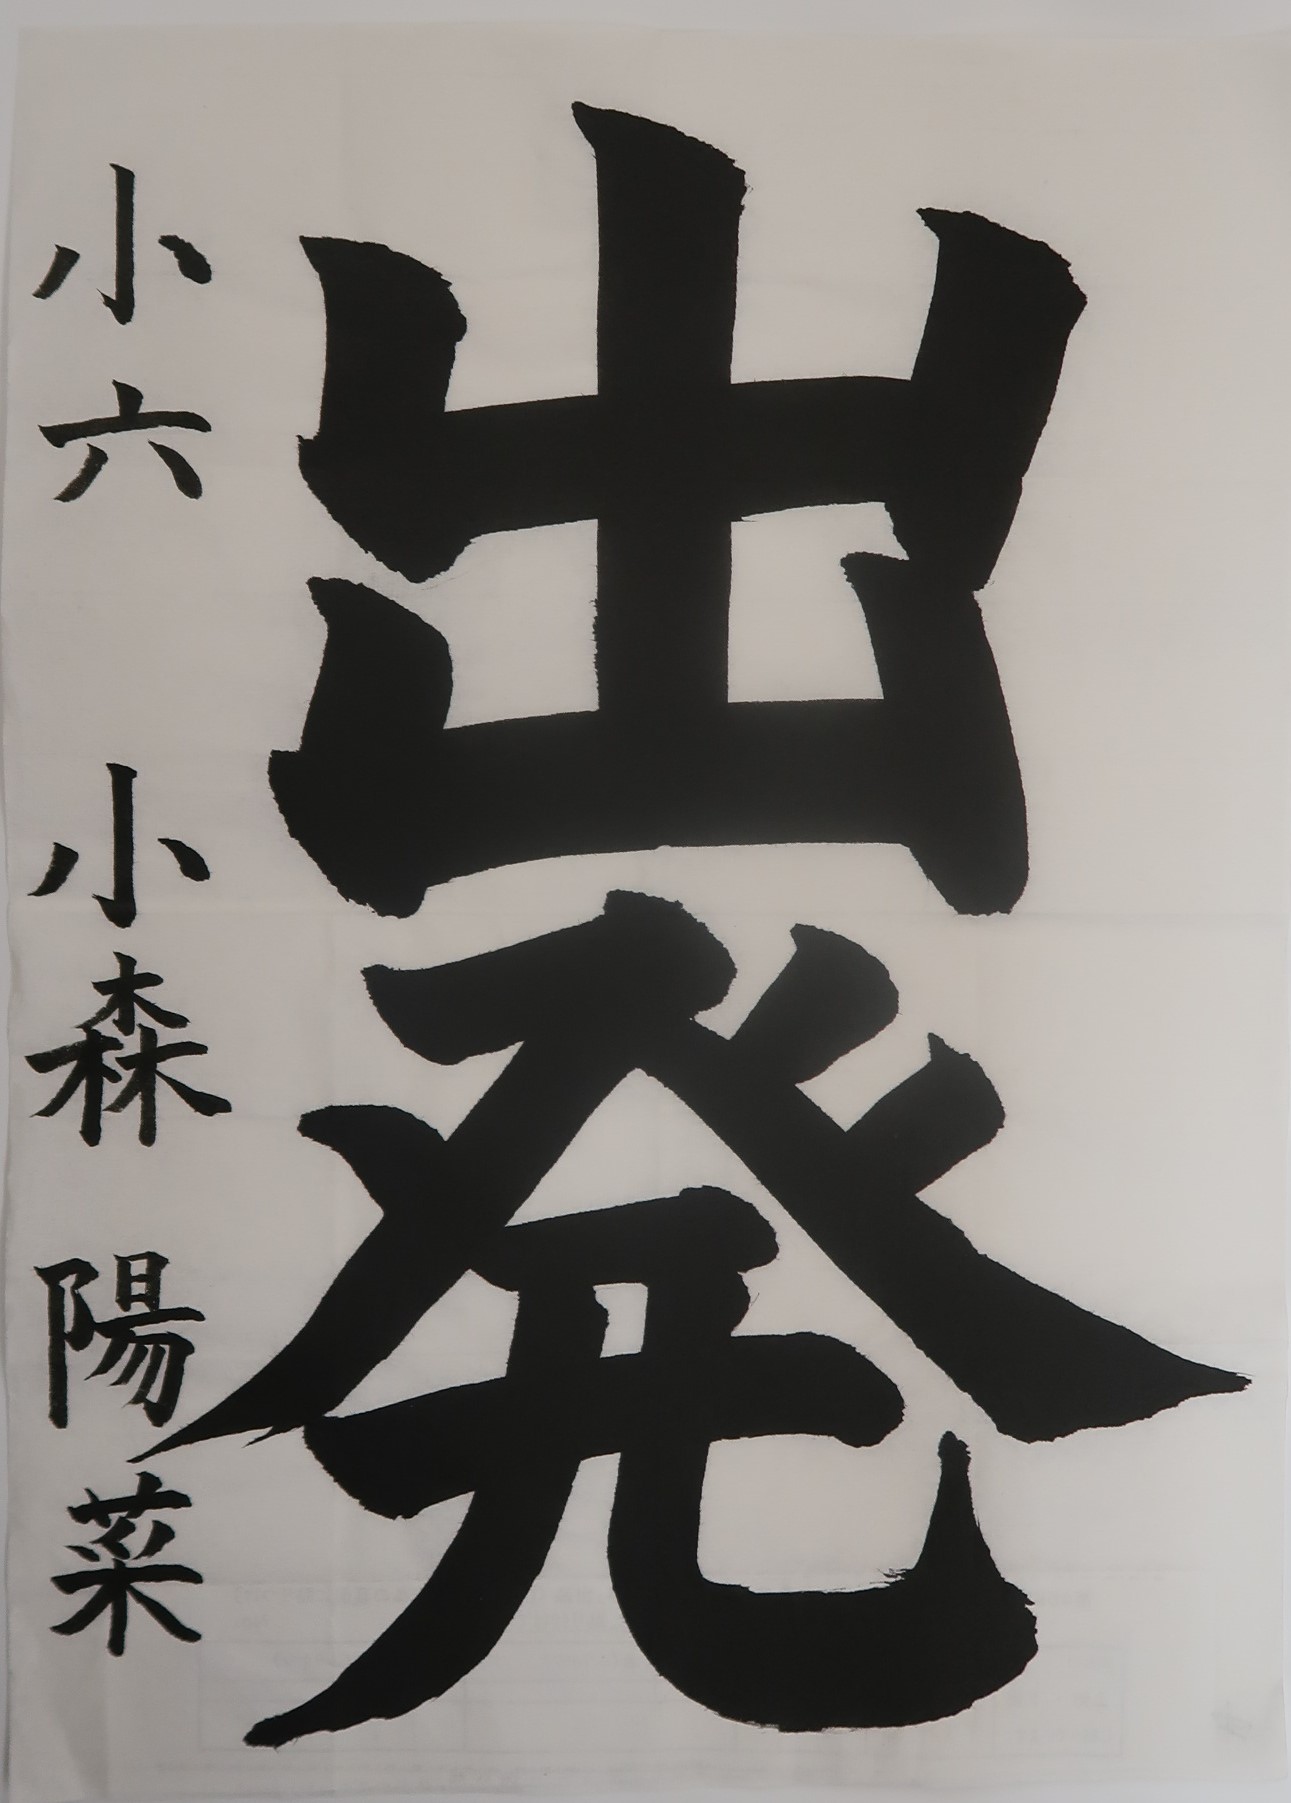 出発
小六 小森 陽菜